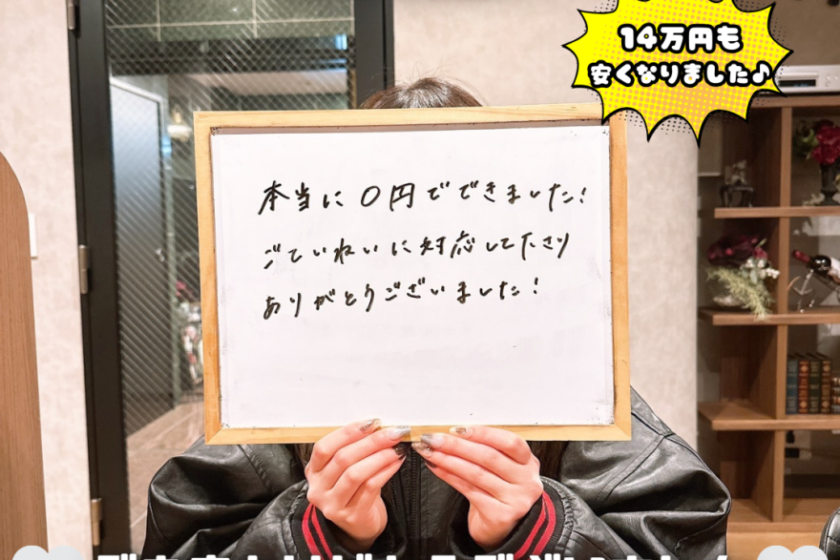 14万円も
安くなりました♪
本当に0円でできました!
ごていねいに対応して下さり
ありがとうございました!